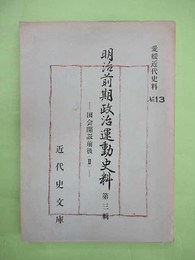 愛媛近代史料 No.13
明治前期政治運動史料 第三輯
―国会開設前後Ⅱ―
近代史文庫